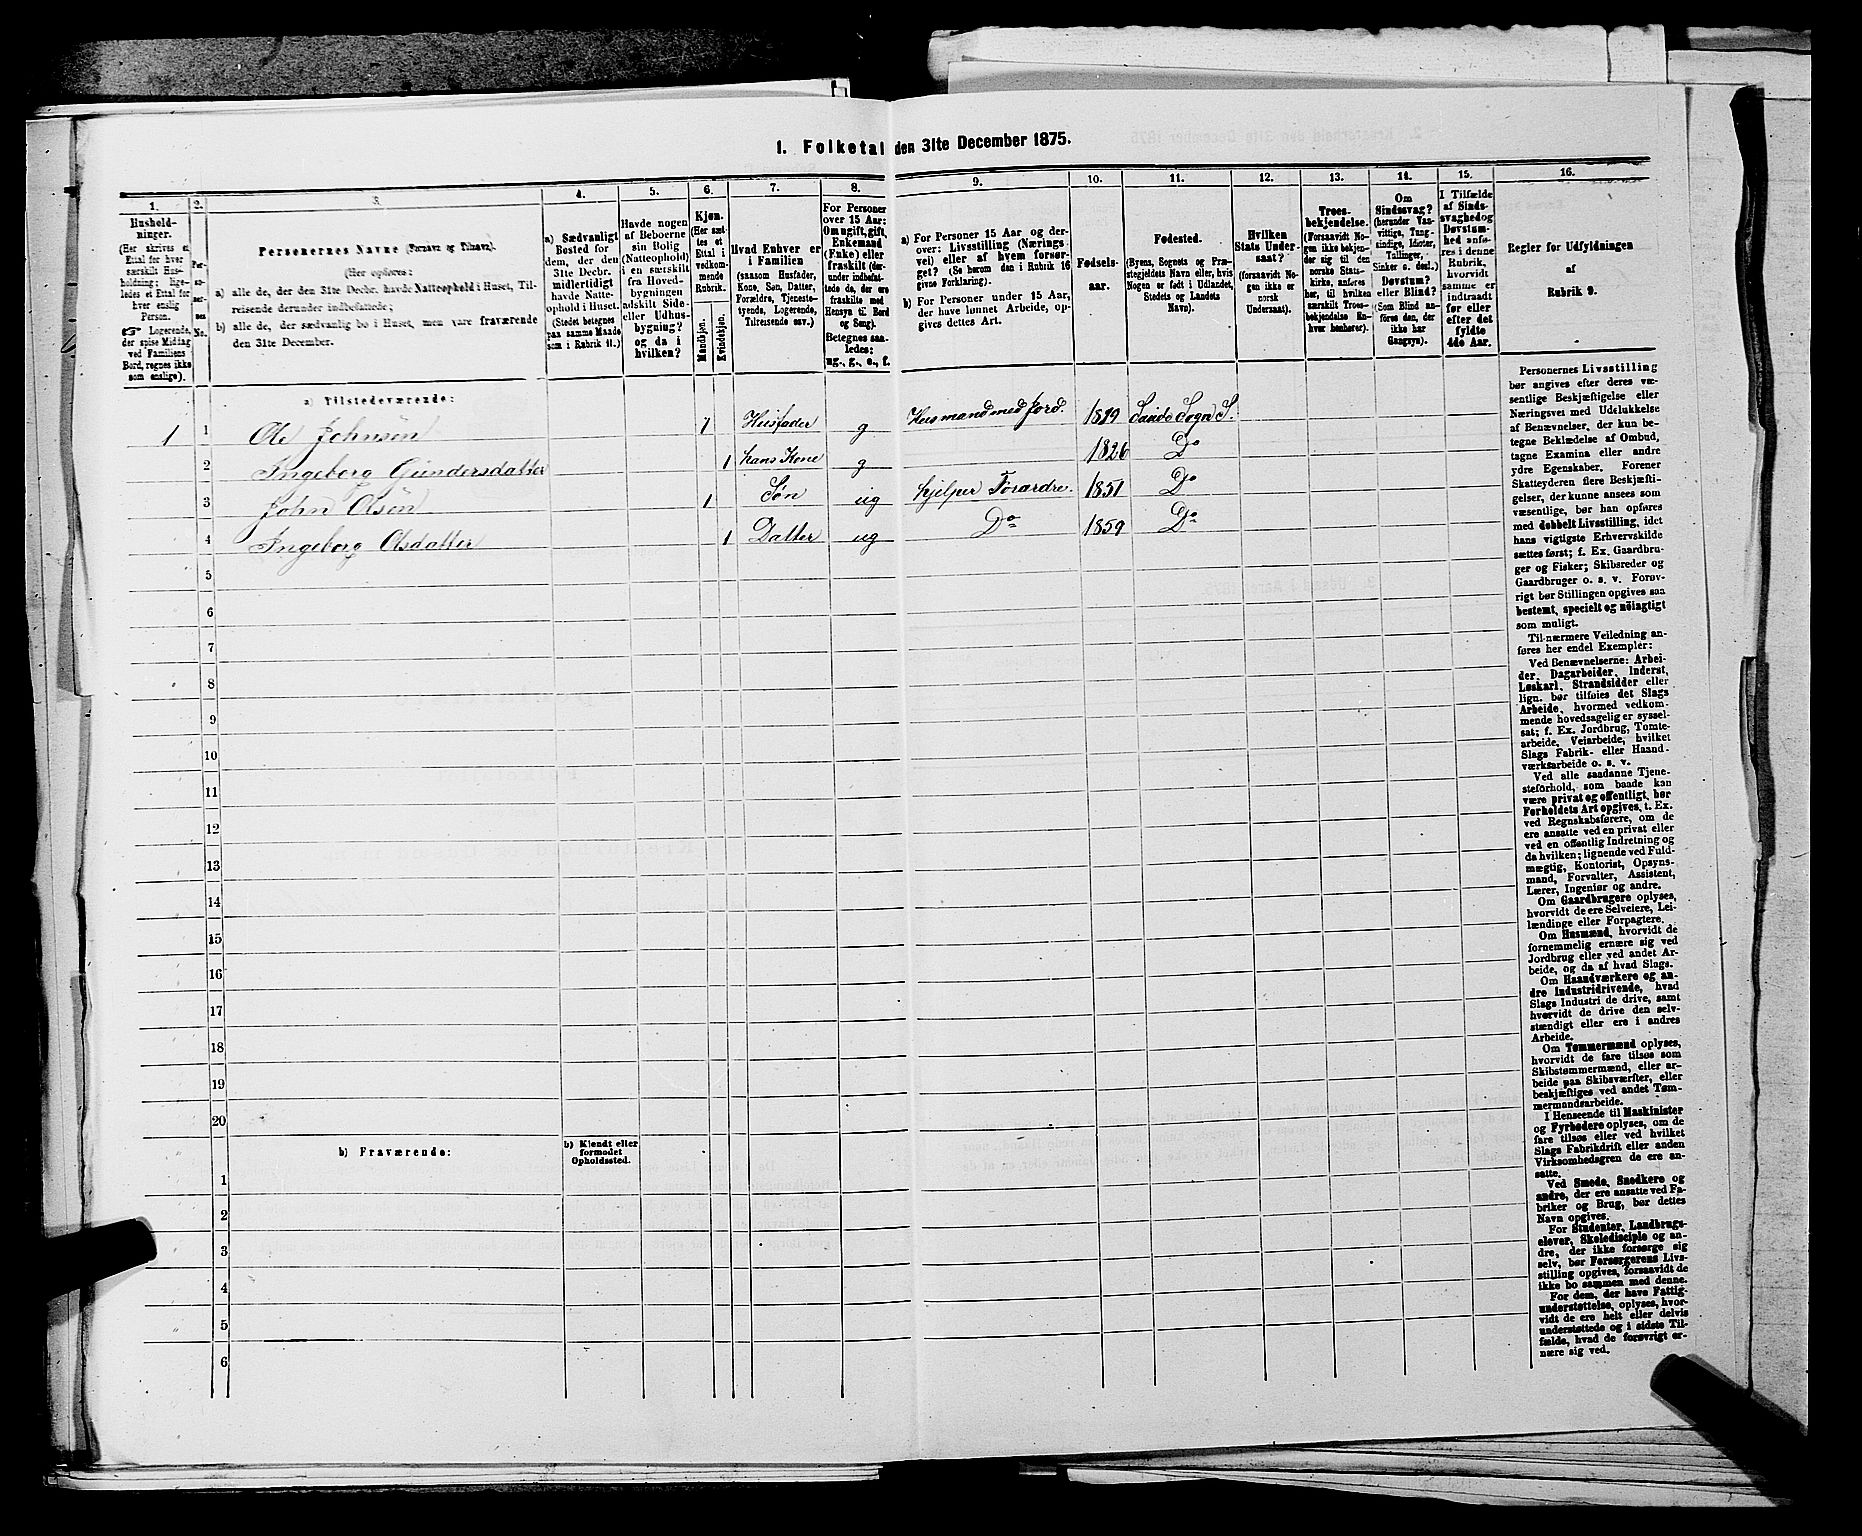 1. Folketal den 31te December 1875.
1. 2. 3. 4. 5. 6. 7. 8. 9. 10. 11. 12. 13. 14. 15. 16.
Hushold-
ninger.
(Her skrives et
Ettal for hver
særskilt Hus-
holdning; lige-
ledes et Ettal for
hver enslig
Person.
☞ Logerende,
der spise Middag
ved Familiens
Bord, regnes ikke
som enslige).
Per-
so-
ner-
nes
No.
Personernes Navne (Fornavn og Tilnavn).
(Her opføres:
a) alle de, der den 31te Decbr. havde Natteophold i Huset, Til-
reisende derunder indbefattede;
b) alle de, der sædvanlig bo i Huset, men vare fraværende
den 31te December.
a) Sædvanligt
Bosted for
dem, der den
31te Decbr.
midlertidigt
havde Natte-
ophold i Huset.
(Stedet betegnes
paa samme Maade
som i Rubrik 11.)
Havde nogen
af Beboerne
sin Bolig
(Natteophold)
i en særskilt
fra Hoved-
bygningen
adskilt Side-
eller Udhus-
bygning?
og da i
hvilken?
Kjøn.
(Her sæt-
tes et
Ettal i
vedkom-
mende
Rubrik.
Mandkjøn.
Kvindekjøn.
Hvad Enhver er
i Familien
(saasom Husfader,
Kone, Søn, Datter,
Forældre, Tjeneste-
tyende, Logerende,
Tilreisende osv.)
For Personer
over 15 Aar:
Om ugift, gift,
Enkemand
(Enke) eller
fraskilt (der-
under indbefat-
tede de, der ere
fraskilte med
Hensyn til Bord
og Seng).
Betegnes saa-
ledes:
ug., g., e., f.
a) For Personer 15 Aar og der-
over: Livsstilling (Nærings-
vei) eller af hvem forsør-
get? (Se herom den i Rubrik 16
givne Forklaring).
b) For Personer under 15 Aar,
der have lønnet Arbeide, op-
gives dettes Art.
Fødsels-
aar.
Fødested.
(Byens, Sognets og Præ-
stegjeldets Navn eller, hvis
Nogen er født i Udlandet,
Stedets og Landets
Navn).
Hvilken
Stats Under-
saat?
(forsaavidt No-
gen ikke er
norsk
Undersaat).
Troes-
bekjendelse.
(Forsaavidt No-
gen ikke bekjen-
der sig til den
norske Stats-
kirke, anføres
her, til hvilken
særskilt Troes-
bekjendelse En-
hver henhører).
Om
Sindssvag?
(herunder Van-
vittige, Tung-
sindige, Idioter,
Tullinger,
Sinker o. desl.)
Døvstum?
eller Blind?
(Som Blind an-
føres den, der
ikke har
Gangsyn).
I Tilfælde
af Sinds-
svaghed og
Døvstum-
hed anfø-
res i denne
Rubrik,
hvorvidt
samme er
indtraadt
før eller
efter det
fyldte
4de Aar.
Regler for Udfyldningen
af
Rubrik 9.
a) Tilstedeværende:
1 1 Ole Johnsen 1 Husfader g Husmand med Jord. 1819 Sauide Sogn S.
2 Ingeborg Gundersdatter 1 hans Kone g 1826 Do
3 John Olsen 1 Søn ug hjelper Forældre. 1851 Do
4 Ingeborg Olsdatter 1 Datter ug Do 1859 Do
5
6
7
8
9
10
11
12
13
14
15
16
17
18
19
20
b) Fraværende:
b) Kjendt eller
formodet
Opholdssted.
1
2
3
4
5
6
Personernes Livsstilling
bør angives efter deres væ-
sentlige Beskjæftigelse eller
Næringsvei med Udelukkelse
af Benævnelser, der kun be-
tegne Beklædelse af Ombud,
tagne Examina eller andre
ydre Egenskaber. Forener
Skatteyderen flere Beskjæfti-
gelser, der kunne ansees som
væsentlige, bør han opføres
med dobbelt Livsstilling, idet
hans vigtigste Erhvervskilde
sættes først; f. Ex. Gaardbru-
ger og Fisker; Skibsreder og
Gaardbruger o. s. v. Forøv-
rigt bør Stillingen opgives saa
bestemt, specielt og nöiagtigt
som muligt.
Til nærmere Veiledning an-
føres her endel Exempler:
Ved Benævnelserne: Arbei-
der, Dagarbeider, Inderst,
Løskarl, Strandsidder eller
lign. bør tilføies det Slags
Arbeide, hvormed vedkom-
mende hovedsagelig er syssel-
sat; f. Ex. Jordbrug, Tomte-
arbeide, Veiarbeide, hvilket
Slags Fabrik- eller Haand-
værksarbeide o. s. v.
Ved alle saadanne Tjene-
steforhold, som baade kan
være privat og offentligt, bør
Forholdets Art opgives, t. Ex.
ved Regnskabsførere, om de
ere ansatte ved en privat eller
ved en offentlig Indretning og
da hvilken; lignende ved Fuld-
mægtig, Kontorist, Opsyns-
mand, Forvalter, Assistent,
Lærer, Ingeniør og andre.
Om Gaardbrugere oplyses,
hvorvidt de ere Selveiere, Lei-
lændinge eller Forpagtere.
Om Husmænd, hvorvidt de
fornemmelig ernære sig ved
Jordbrug eller ved andet Ar-
beide, og da af hvad Slags.
Om Haandværkere og an-
dre Industridrivende, hvad
Slags Industri de drive, samt
hvorvidt de drive den selv-
stændigt eller ere i andres
Arbeide.
Om Tømmermænd oplyses,
hvorvidt de fare tilsøs som
Skibstømmermænd, eller ar-
beide paa Skibsværfter, eller
beskjæftiges ved andet Tøm-
mermandsarbeide.
I Henseende til Maskinister
og Fyrbødere oplyses, om de
fare tilsøs eller ved hvilket
Slags Fabrikdrift eller anden
Virksomhedsgren de ere an-
satte.
Ved Smede, Snedkere og
andre, der ere ansatte ved Fa-
briker og Brug, bør dettes
Navn opgives.
For Studenter, Landbrugs-
elever, Skoledisciple og an-
dre, der ikke forsørge sig
selv, bør Forsørgerens Livs-
stilling opgives, forsaavidt de
ikke bo sammen med denne.
For dem, der have Fattig-
understøttelse, oplyses, hvor-
vidt de ere helt eller delvis
understøttede og i sidste Til-
fælde, hvad de forøvrigt er-
nære sig ved.